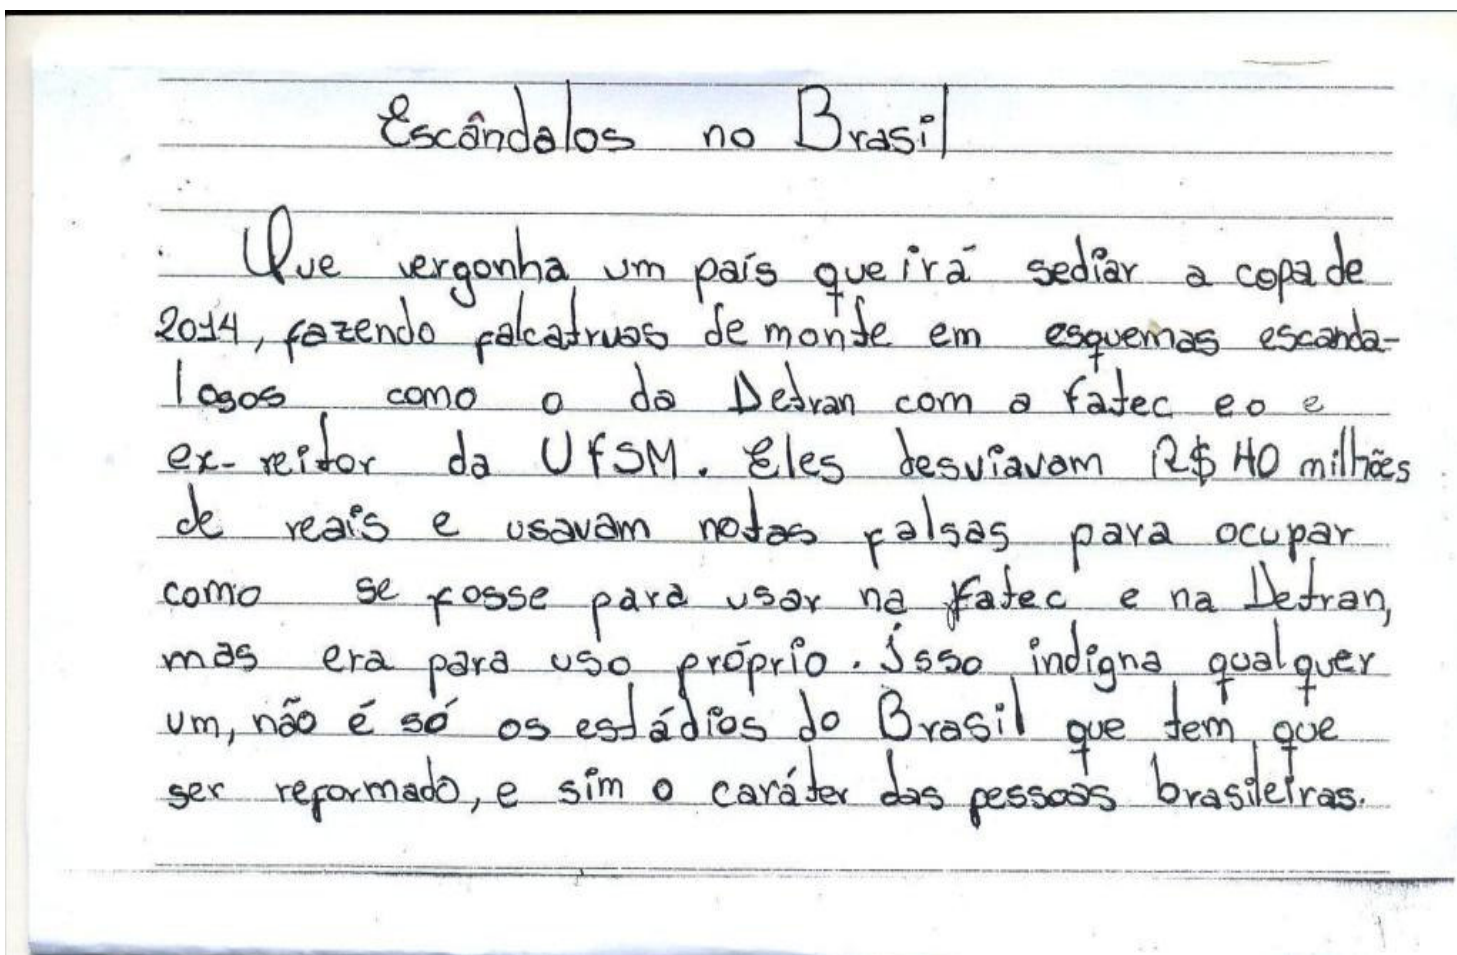 Escândalos no Brasil
Que vergonha um país que irá sediar a copa de
2014, fazendo falcatruas de monte em esquemas escanda-
logos como o da Detran com a Fatec e o e
ex-reitor da UFSM. Eles desviavam R$ 40 milhões
de reais e usavam notas falsas para ocupar
como se fosse para usar na Fatec e na Detran,
mas era para uso próprio. Isso indigna qualquer
um, não é só os estádios do Brasil que tem que
ser reformado, e sim o caráter das pessoas brasileiras.